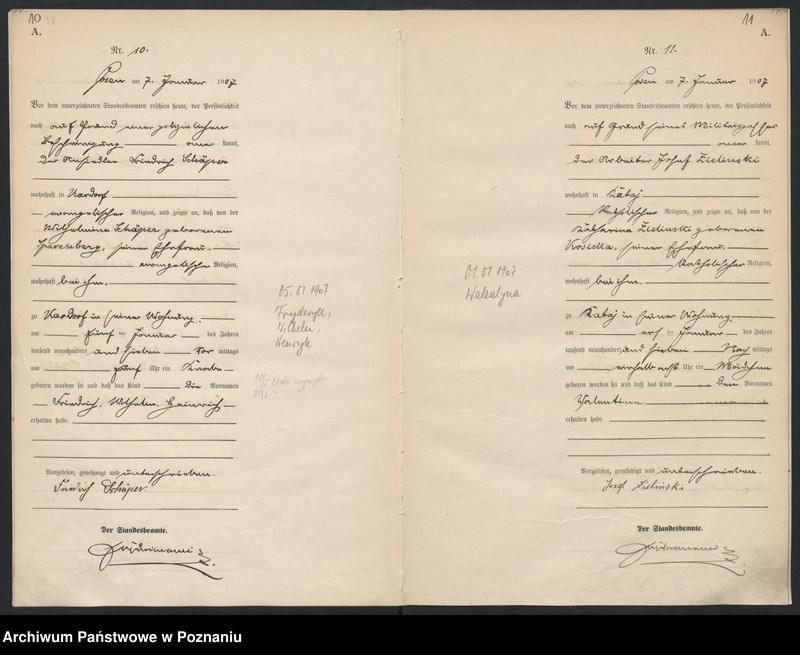 10
A.
Nr. 10.
Posen am 7. Januar 1907
Vor dem unterzeichneten Standesbeamten erschien heute, der Persönlichkeit
nach auf Grund einer polizeilichen
Bescheinigung aner kannt,
der Ansiedler Friedrich Schäper
wohnhaft in Nardorf
evangelischer Religion, und zeigte an, daß von der
Wilhelmine Schäper geborenen
Sparenberg, seiner Ehefrau
evangelischer Religion,
wohnhaft bei ihm,
zu Nardorf in seiner Wohnung,
am fünf ten Januar des Jahres
tausend neunhundert und sieben Vor mittags
um fünf Uhr ein Knabe
geboren worden sei und daß das Kind die Vornamen
Friedrich, Wilhelm, Heinrich
erhalten habe.
Vorgelesen, genehmigt und unterschrieben.
Friedrich Schäper.
Der Standesbeamte.
05.01.1907
Fryderyk,
Wilhelm,
Henryk
11
A.
Nr. 11.
Posen am 7. Januar 1907
Vor dem unterzeichneten Standesbeamten erschien heute, der Persönlichkeit
nach auf Grund seines Militärpasses
aner kannt,
der Arbeiter Josef Zielinski
wohnhaft in Kataj
katholischer Religion, und zeigte an, daß von der
Katharina Zielinski geborenen
Kosicka, seiner Ehefrau
katholischer Religion,
wohnhaft bei ihm,
zu Kataj in seiner Wohnung
am ers ten Januar des Jahres
tausend neunhundert und sieben Nach mittags
um einhalb acht Uhr ein Mädchen
geboren worden sei und daß das Kind den Vornamen
Valentine
erhalten habe.
Vorgelesen, genehmigt und unterschrieben.
Jozef Zielinski.
Der Standesbeamte.
01.01.1907
Walentyna
Archiwum Państwowe w Poznaniu